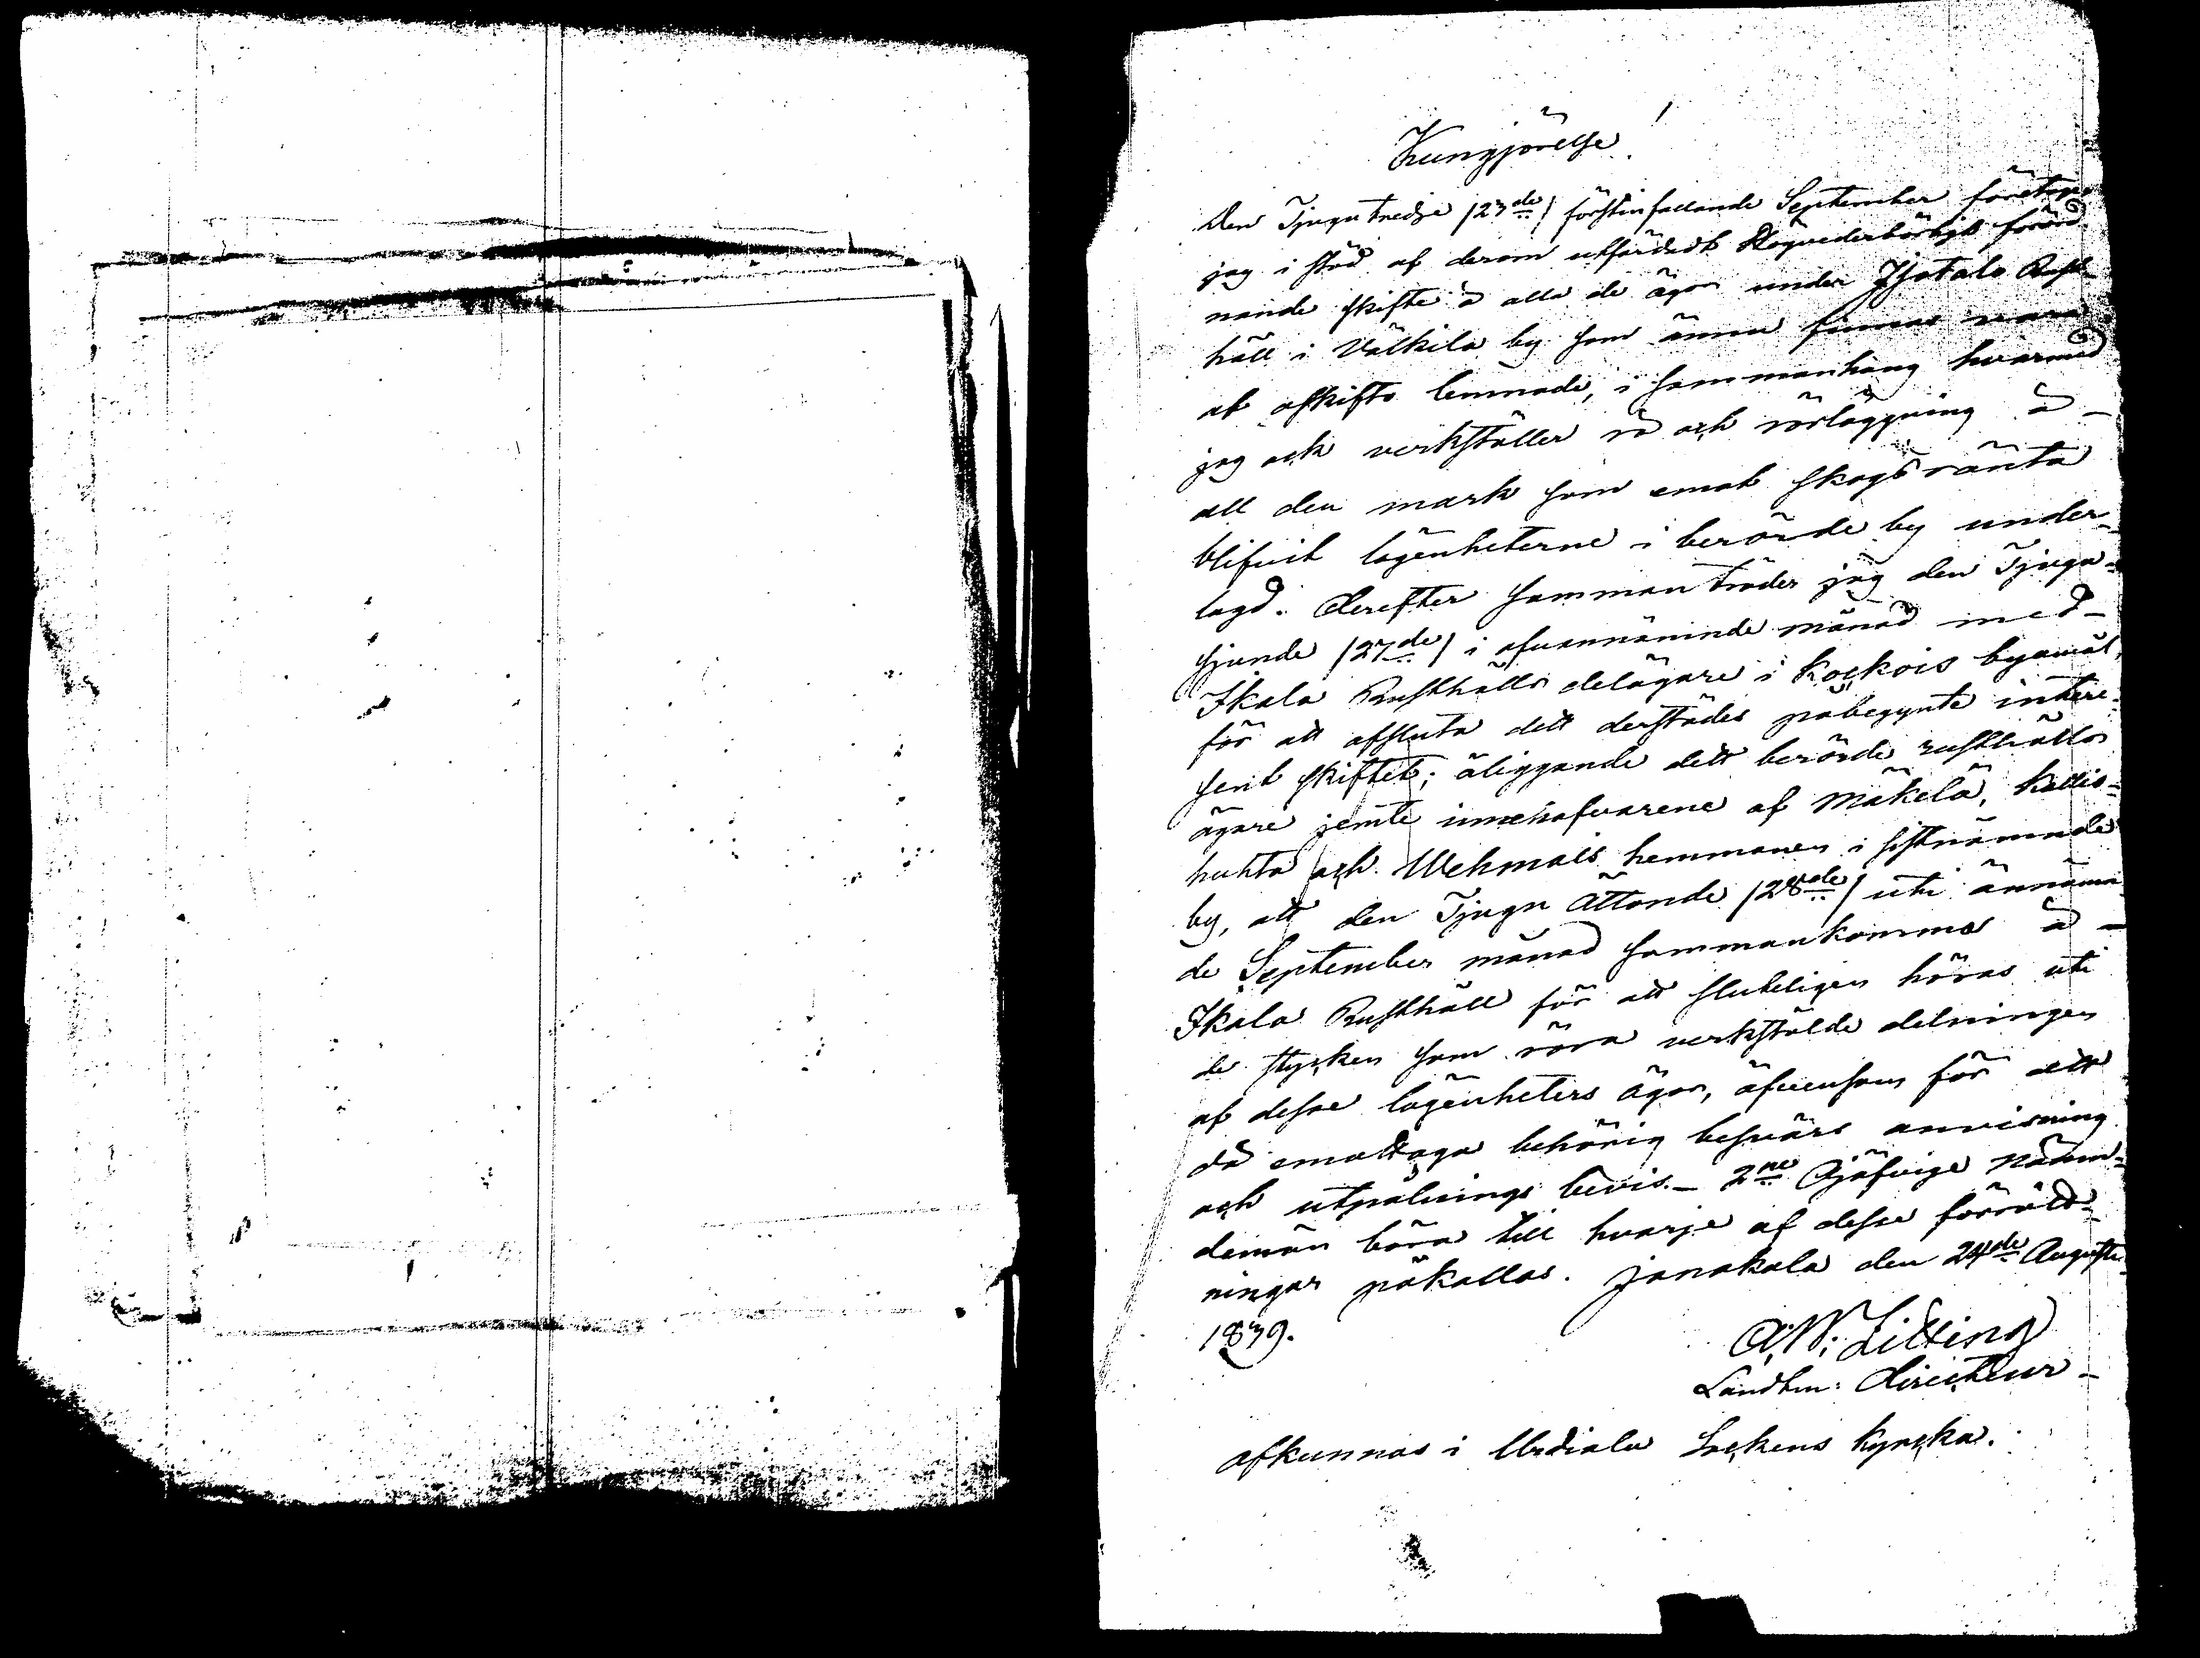 Kungjörelse!
Den Tjugutredje /23de/ förstinfallande September företager
jag i stöd af derom utfärdadt Högvederbörligt förord-
nande skifte å alla de ägor under Isotalo Rust-
håll i Välkilä by som ännu finnas vara
at oskifto lemnade, i sammanhang hvarmed
jag ock verkställer rå och rörläggning å
all den mark som emot skogsränta
blifvit lägenheterne i berörde by under-
lagd. Derefter sammanträder jag den Tjugu-
sjunde /27de/ i ofvannämnde månad med
Skala Rusthålls delägare i Kockois byamål,
för att afsluta dett derstädes påbegynte intres-
sent skiftet; åliggande dett berörde rusthålls
ägare jemte innehafvarene af Mäkelä, Kallis-
huhta och Wehmais hemmanen i sistnämnde
by, att den Tjugu Åttonde /28de/ uti ännämn-
de September månad sammankomma å
Skala Rusthåll för att sluteligen höras uti
de stycken som röra verkstälde delningen
af desse lägenheters ägor, äfvensom för att
då emottaga behörig besvärs anvisning
och utpålnings bevis. 2ne Ojäfvige nämn-
demän böra till hvarje af desse förrätt-
ningar påkallas. Janakala den 24de Augusti
1839.
A:W: Lilling
Landtm: Directeur
afkunnas i Urdiala Sockens Kyrcka.